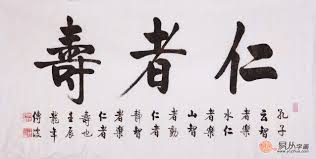 仁者壽
孔子
云智
者樂
水仁
者樂
山智
者動
仁者
靜智
者樂
仁者
壽也
壬辰
龍年
易从字画